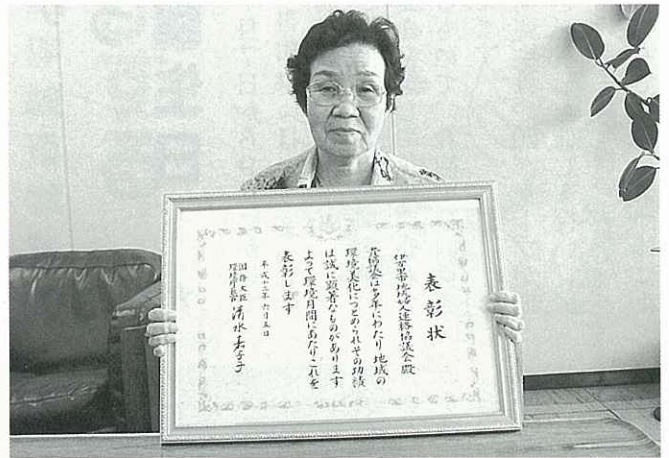 表彰状
伊万里市地域婦人連絡協議会殿
貴協議会は多年にわたり地域の
環境美化につとめられその功績
は誠に顕著なものがあります
よって環境月間にあたりこれを
表彰します
平成十二年六月五日
国務大臣
環境庁長官 清水嘉与子